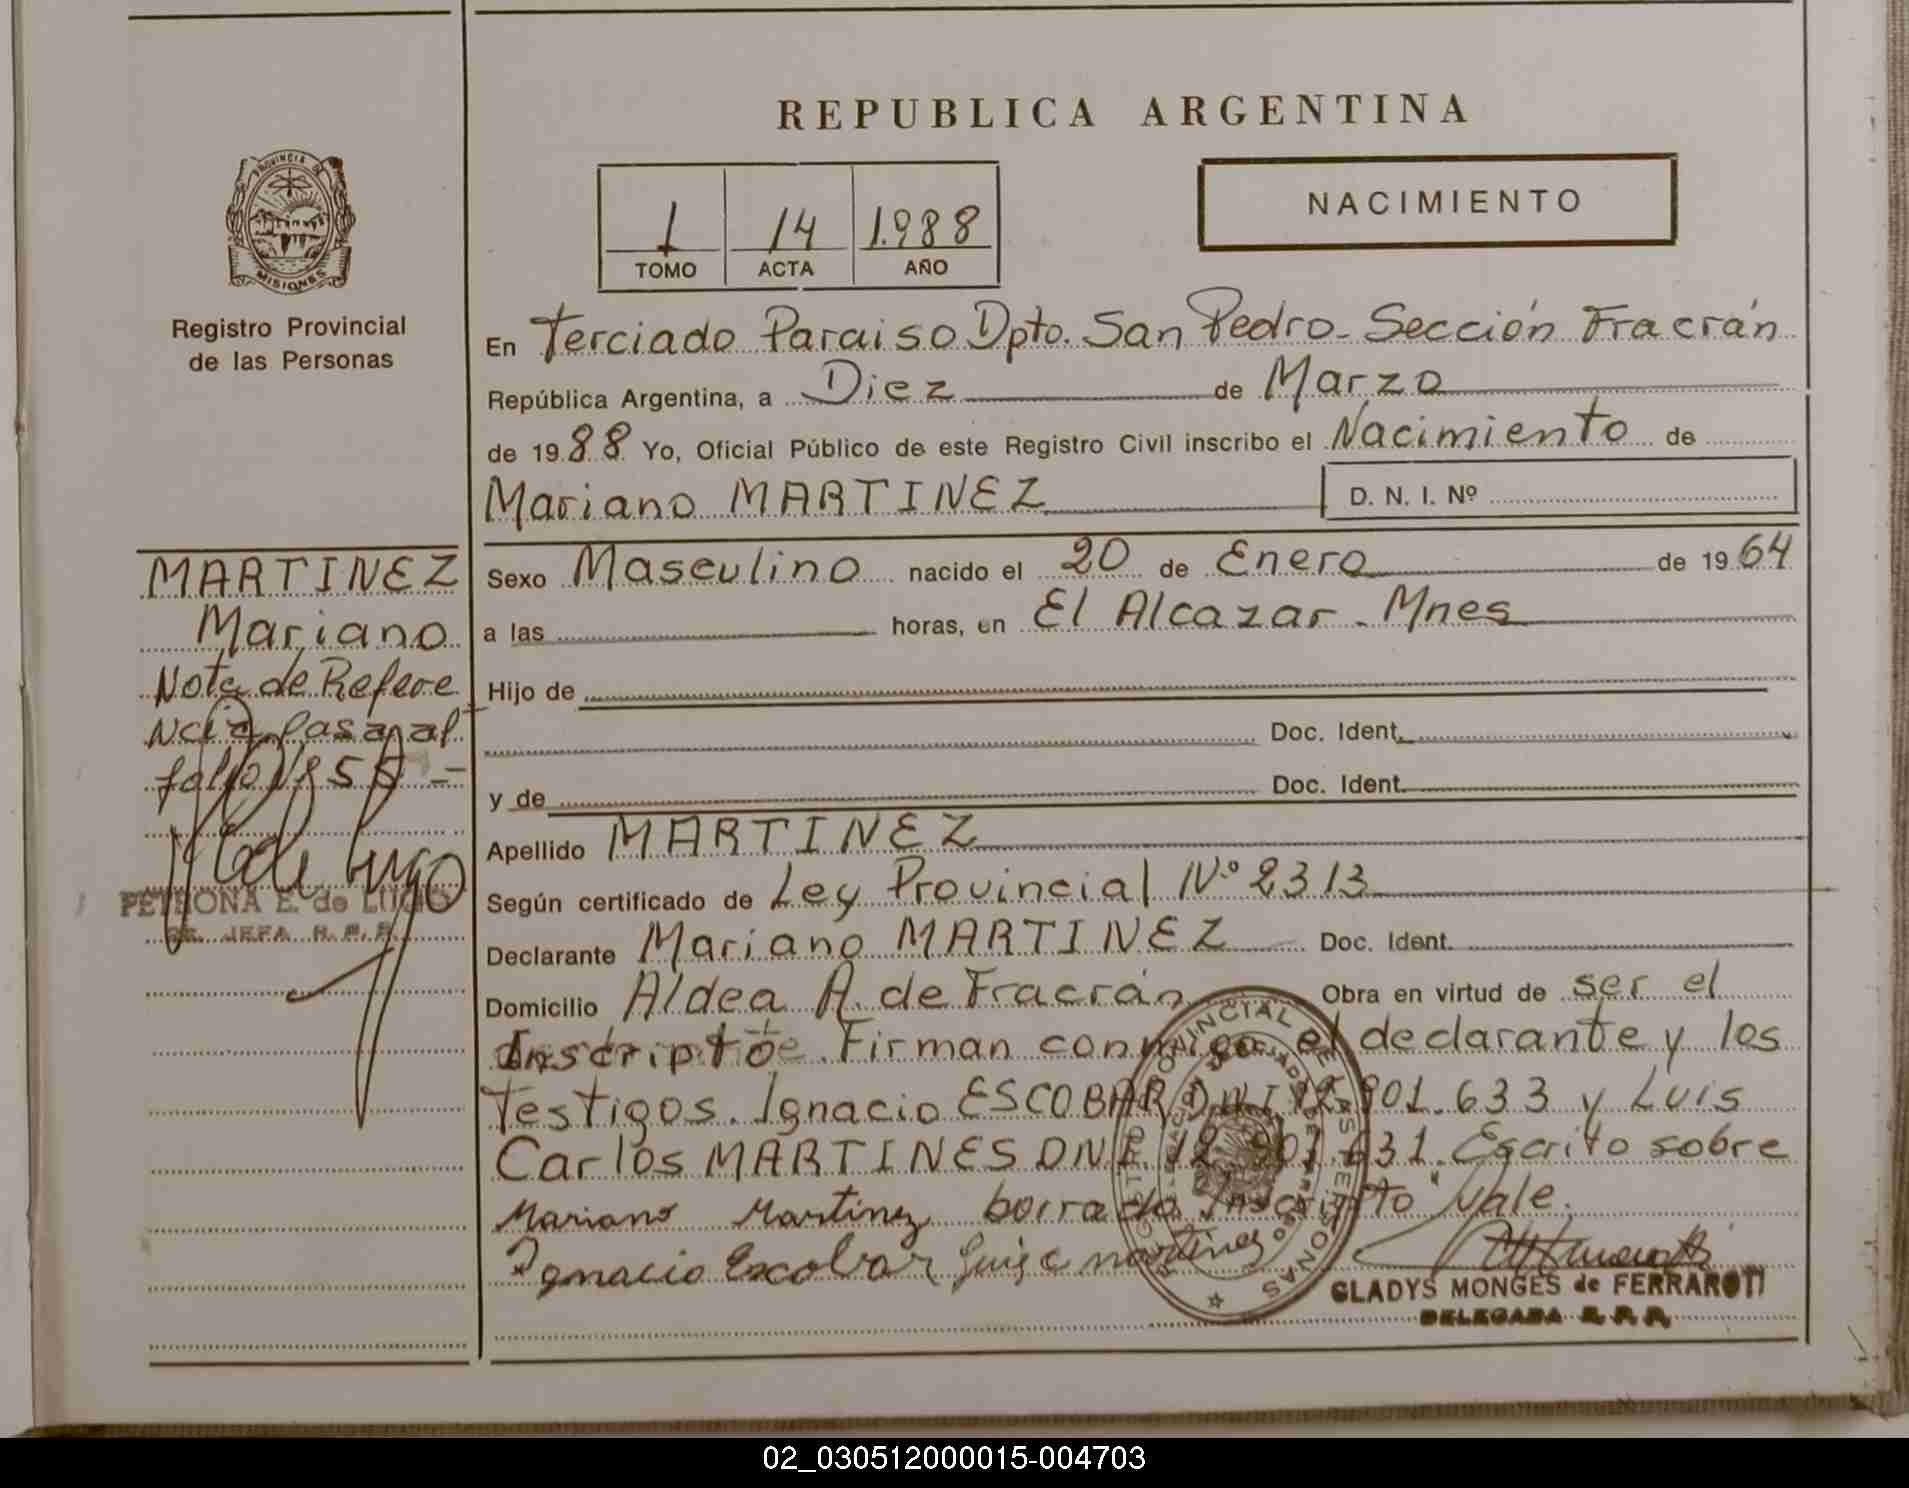 REPUBLICA ARGENTINA
PROVINCIA DE
MISIONES
Registro Provincial
de las Personas
1 14 1.988
TOMO ACTA AÑO
NACIMIENTO
En Terciado Paraiso Dpto. San Pedro - Sección Fracrán
República Argentina, a Diez de Marzo
de 1988 Yo, Oficial Público de este Registro Civil inscribo el Nacimiento de
Mariano MARTINEZ D. N. I. Nº
Sexo Masculino nacido el 20 de Enero de 1964
a las horas, en El Alcazar - Mnes
Hijo de
Doc. Ident.
y de Doc. Ident.
Apellido MARTINEZ
Según certificado de Ley Provincial Nº 2313
Declarante Mariano MARTINEZ Doc. Ident.
Domicilio Aldea A. de Fracrán Obra en virtud de ser el
Inscripto. Firman conmigo el declarante y los
Testigos. Ignacio ESCOBAR D.N.I. 12.901.633 y Luis
Carlos MARTINES DNI. 12.901.631. Escrito sobre
Mariano Martinez borrado "Inscripto" Vale.
Ignacio Escobar Luis C martinez
GLADYS MONGES de FERRAROTI
DELEGADA R. P. P.
MARTINEZ
Mariano
Nota de Refere
ncia Pasa al
folio Nº 55 -
PETRONA E. de LUGO
JEFA R. P. P.
REGISTRO PROVINCIAL DE LAS PERSONAS
02_030512000015-004703